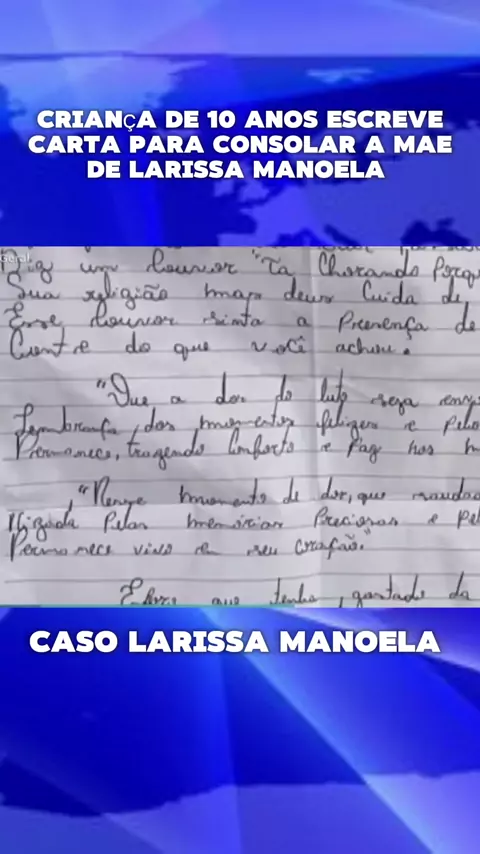 CRIANÇA DE 10 ANOS ESCREVE
CARTA PARA CONSOLAR A MAE
DE LARISSA MANOELA
Geral
Diz um louvor "Ta Chorando Porq
Sua religião mas deus Cuida de
Esse louvor sinta a Presença de
do que você achou.
"Que a dor do luto seja
Lembrança dos momentos felizes e Pelo
Permanece, trazendo Conforto e Paz nos
"Nesse momento de dor, que
Pelas memórias Preciosas e pel
Permanece vivo em seu coração."
que tenha gostado da
CASO LARISSA MANOELA